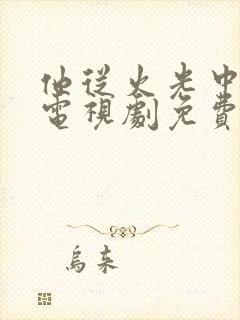 他從火光中
電視劇免費
烏來